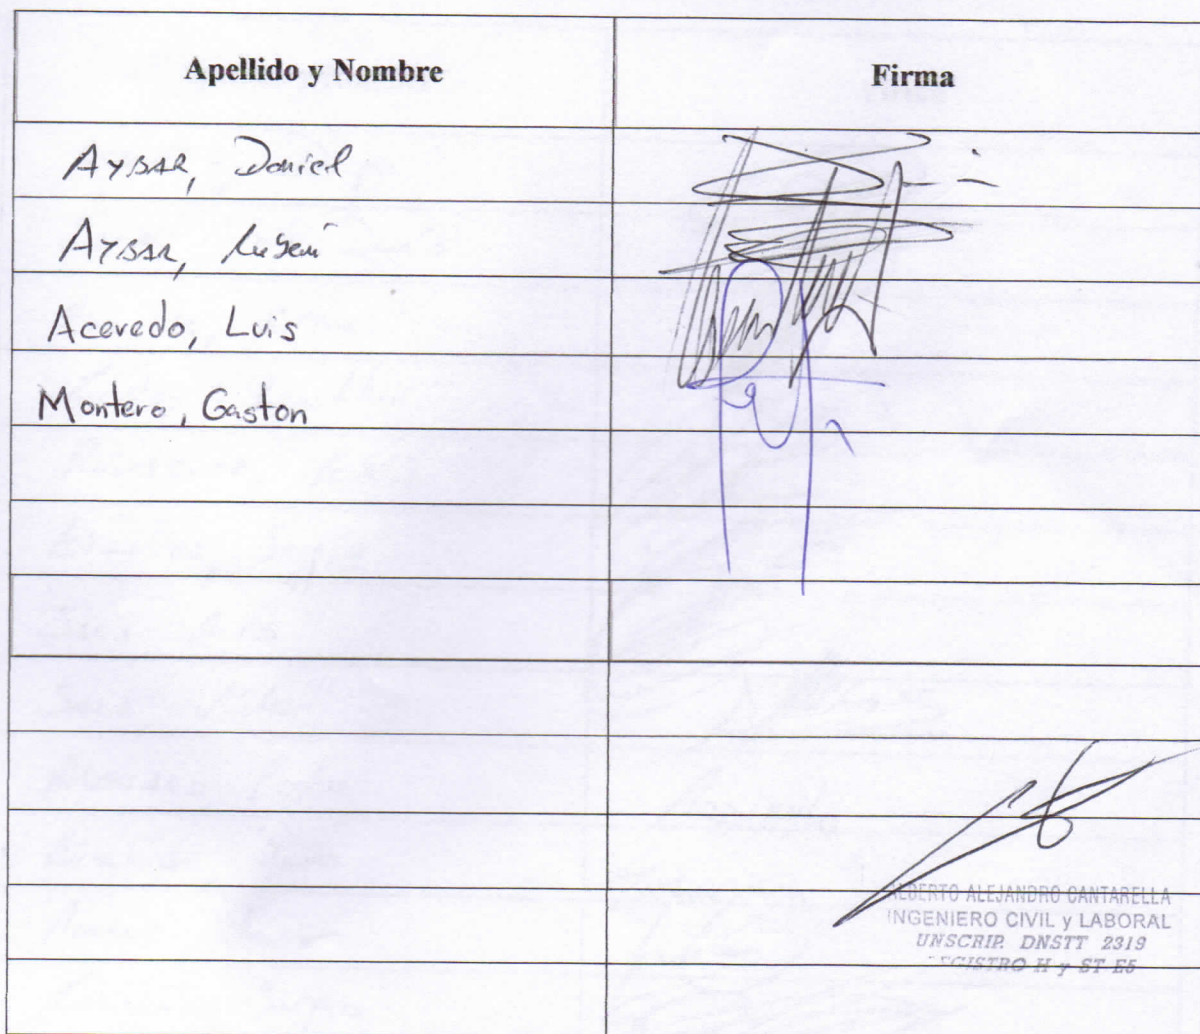 Apellido y Nombre
Firma
Aybar, Daniel
Aybar, Rubén
Acevedo, Luis
Montero, Gaston
ALBERTO ALEJANDRO CANTARELLA
INGENIERO CIVIL y LABORAL
UNSCRIP. DNSTT 2319
REGISTRO H y ST E5